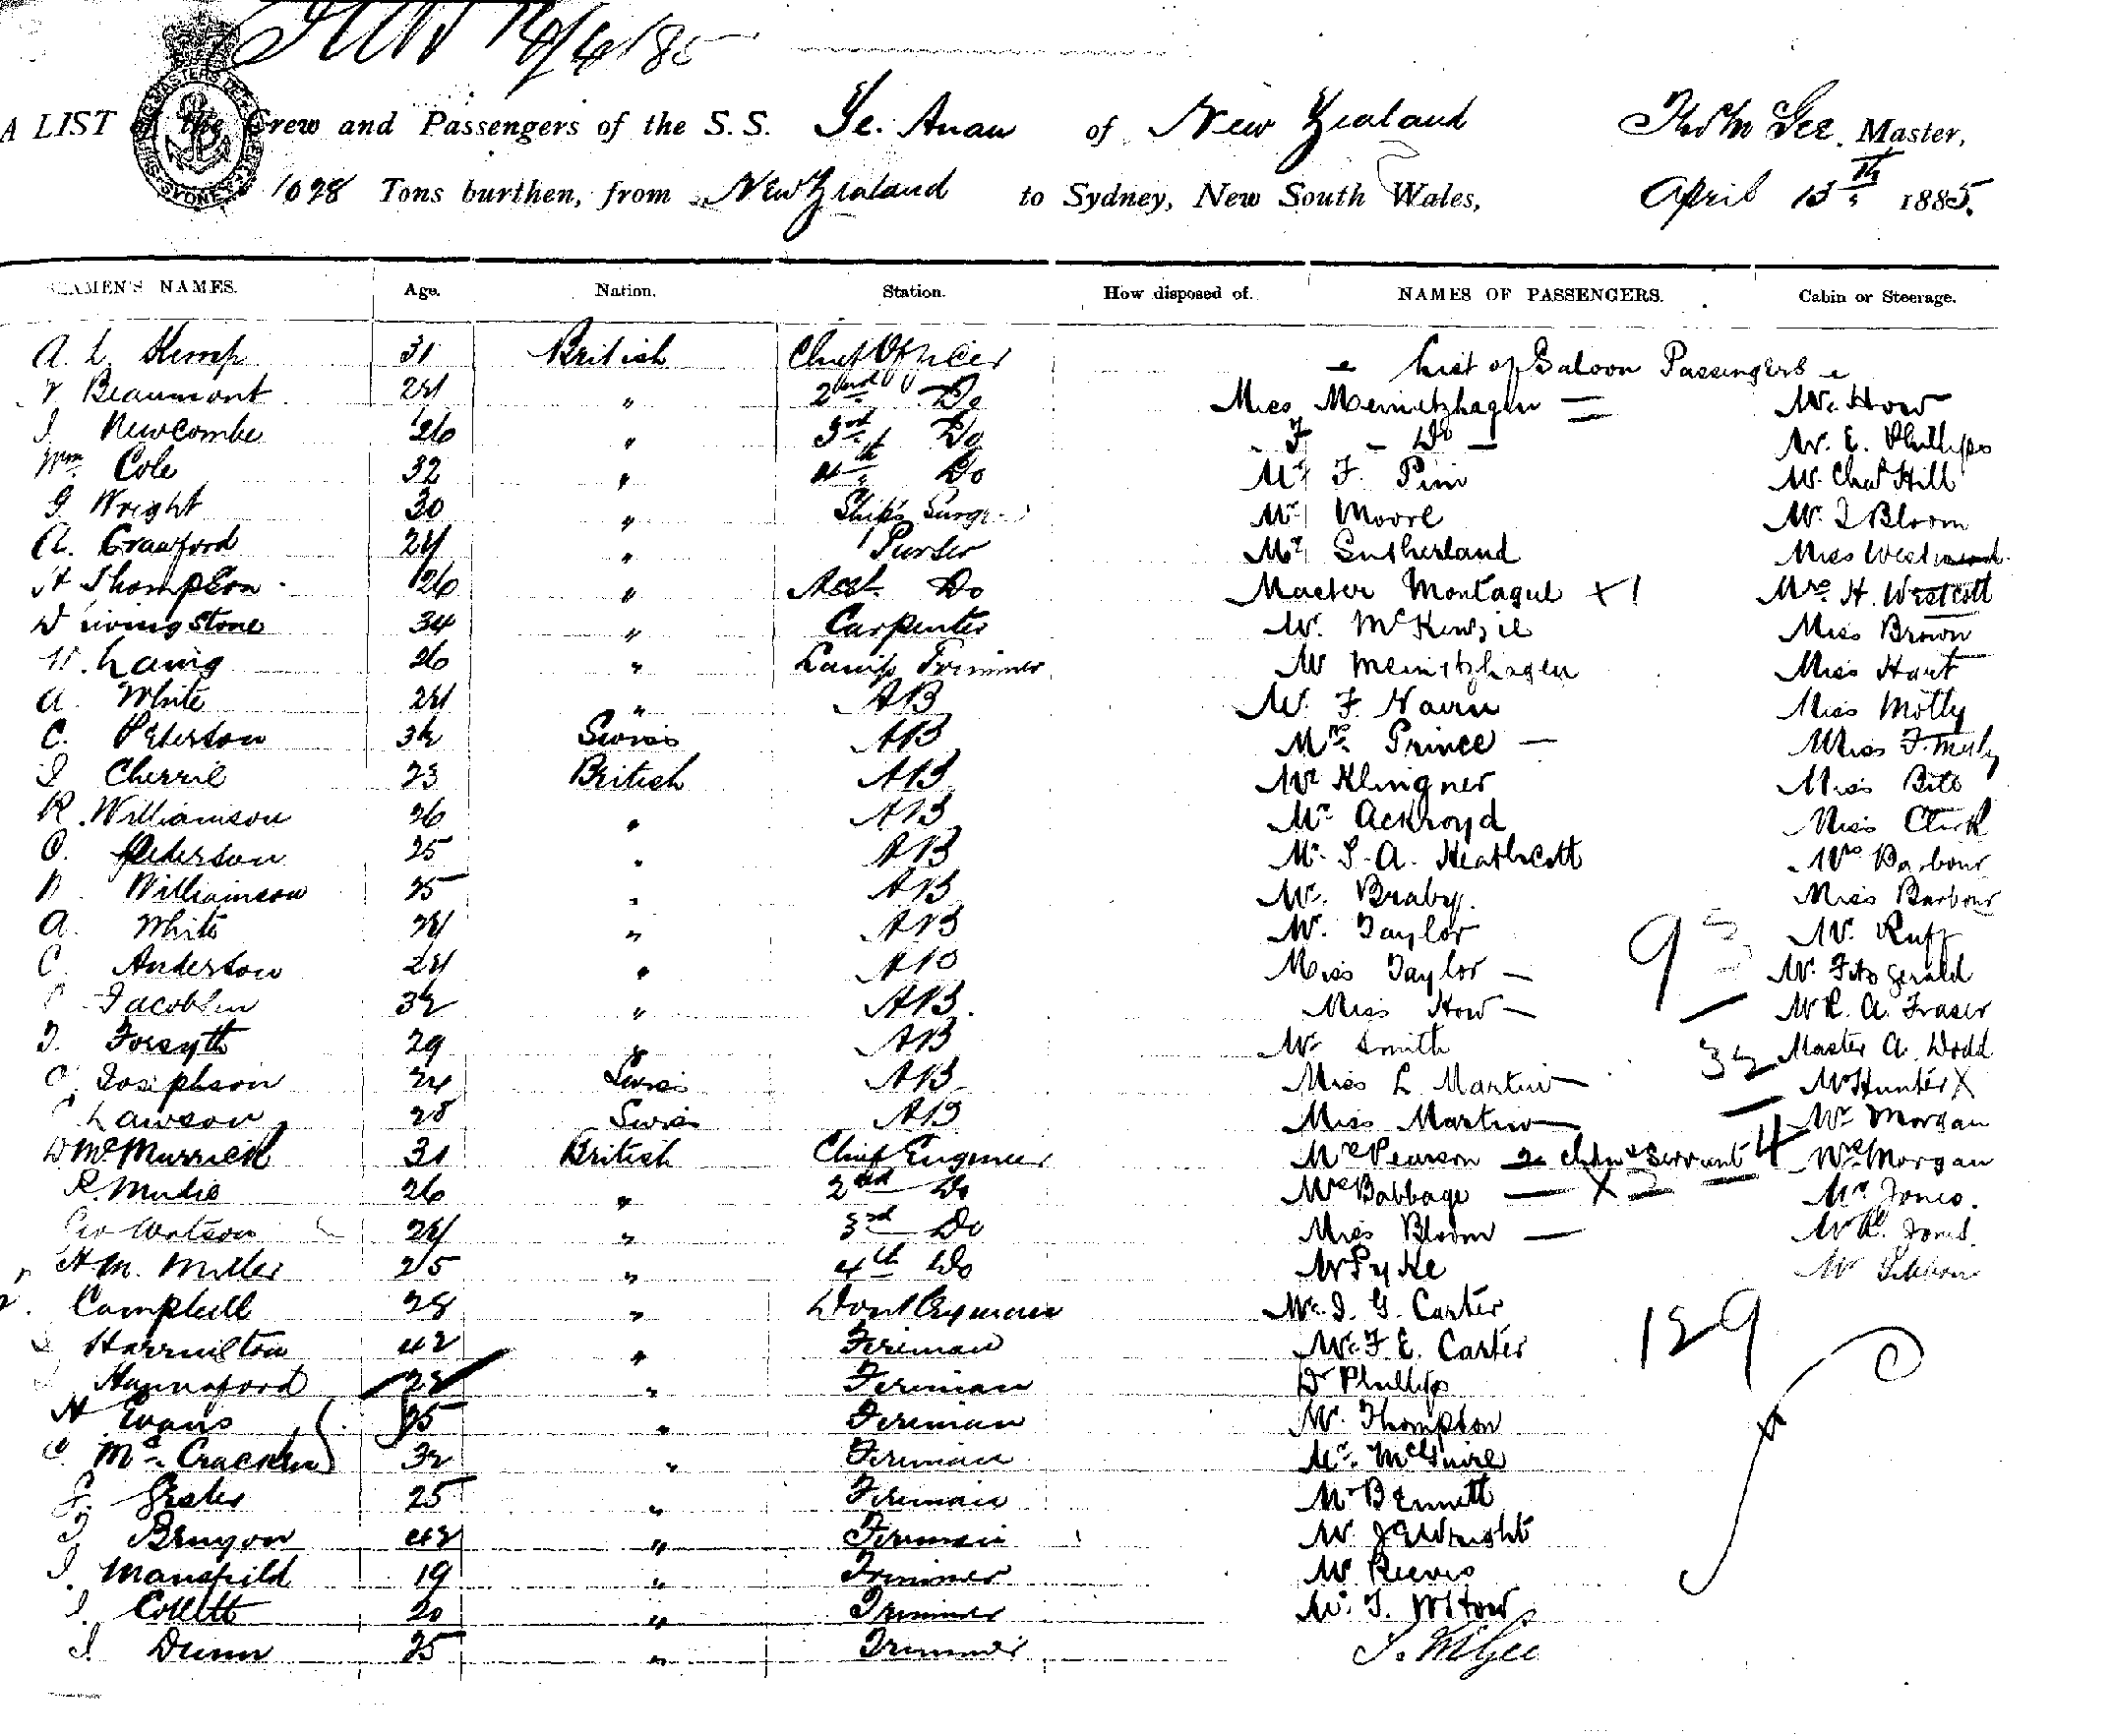 A LIST of the Crew and Passengers of the S.S. Te Anau of New Zealand Thos M Gee, Master,
1028 Tons burthen, from New Zealand to Sydney, New South Wales, April 15th 1885.
SEAMEN'S NAMES. Age. Nation. Station. How disposed of. NAMES OF PASSENGERS. Cabin or Steerage.
A. L. Kemp 31 British Chief Officer List of Saloon Passengers
Beaumont 24 " 2nd Do Miss Meinetzhagen Mr. How
J Newcombe 26 " 3rd Do F Do Mr. E. Phillips
Wm Cole 32 " 4th Do Mr F. Pim Mr. Chas Hill
G Wright 30 " Ship's Surgn Mr Moore Mr. J Bloom
A. Crawford 24 " Purser Mr Sutherland Miss
H Thompson 26 " Asst Do Master Montague x 1 Mrs H. Westcott
D Livingstone 34 " Carpenter Mr. McKenzie Miss Brown
Laing 26 " Lamp Trimmer Mr Meinetzhagen Miss Hart
A. White 24 " AB Mr. F. Nairn Miss Motly
C. Peterson 32 Swiss AB Mrs Prince Miss F.
J Cherrie 23 British AB Mr Klingner Miss
R. Williamson 26 " AB Mr Ackroyd Miss
Peterson 25 " AB Mr. S. A. Heathcott Mrs Barbour
Williamson 25 " AB Mr. Braby. Miss Barbour
A. White 24 " AB Mr. Taylor Mr. Ruff
C. Anderson 24 " AB Miss Taylor Mr. Fitzgerald
Jacobsen 32 " AB. Miss How Mr R. A. Fraser
Forsyth 29 " AB Mr Smith Master A. Dodd
C. Josephson 24 Swiss AB Miss L Martin Mr Hunter X
C Lawson 28 Swiss AB Miss Martin Mr Morgan
D McMurrick 31 British Chief Engineer Mrs Pearson 2 chdn & Servant 4 Mrs Morgan
R. Mudie 26 " 2nd Do Mrs Babbage X 2 Mr Jones.
Geo Watson 24 " 3rd Do Miss Bloom
H M. Miller 25 " 4th Do Mr Pyke Mr
Campbell 28 " Mr. J. G. Carter
Harrington 42 " Fireman Mr. F. E. Carter 129
Hannaford " Fireman Dr Phillips
H Evans 25 " Fireman Mr. Thompson
C McCracken 32 " Fireman Mr. McGuire
25 " Fireman Mr Bennett
Brunyon 42 " Fireman Mr. Wright
J. Mansfield 19 " Trimmer Mr Reeves
J. Collett 20 " Trimmer
J. Dunn 25 " Trimmer